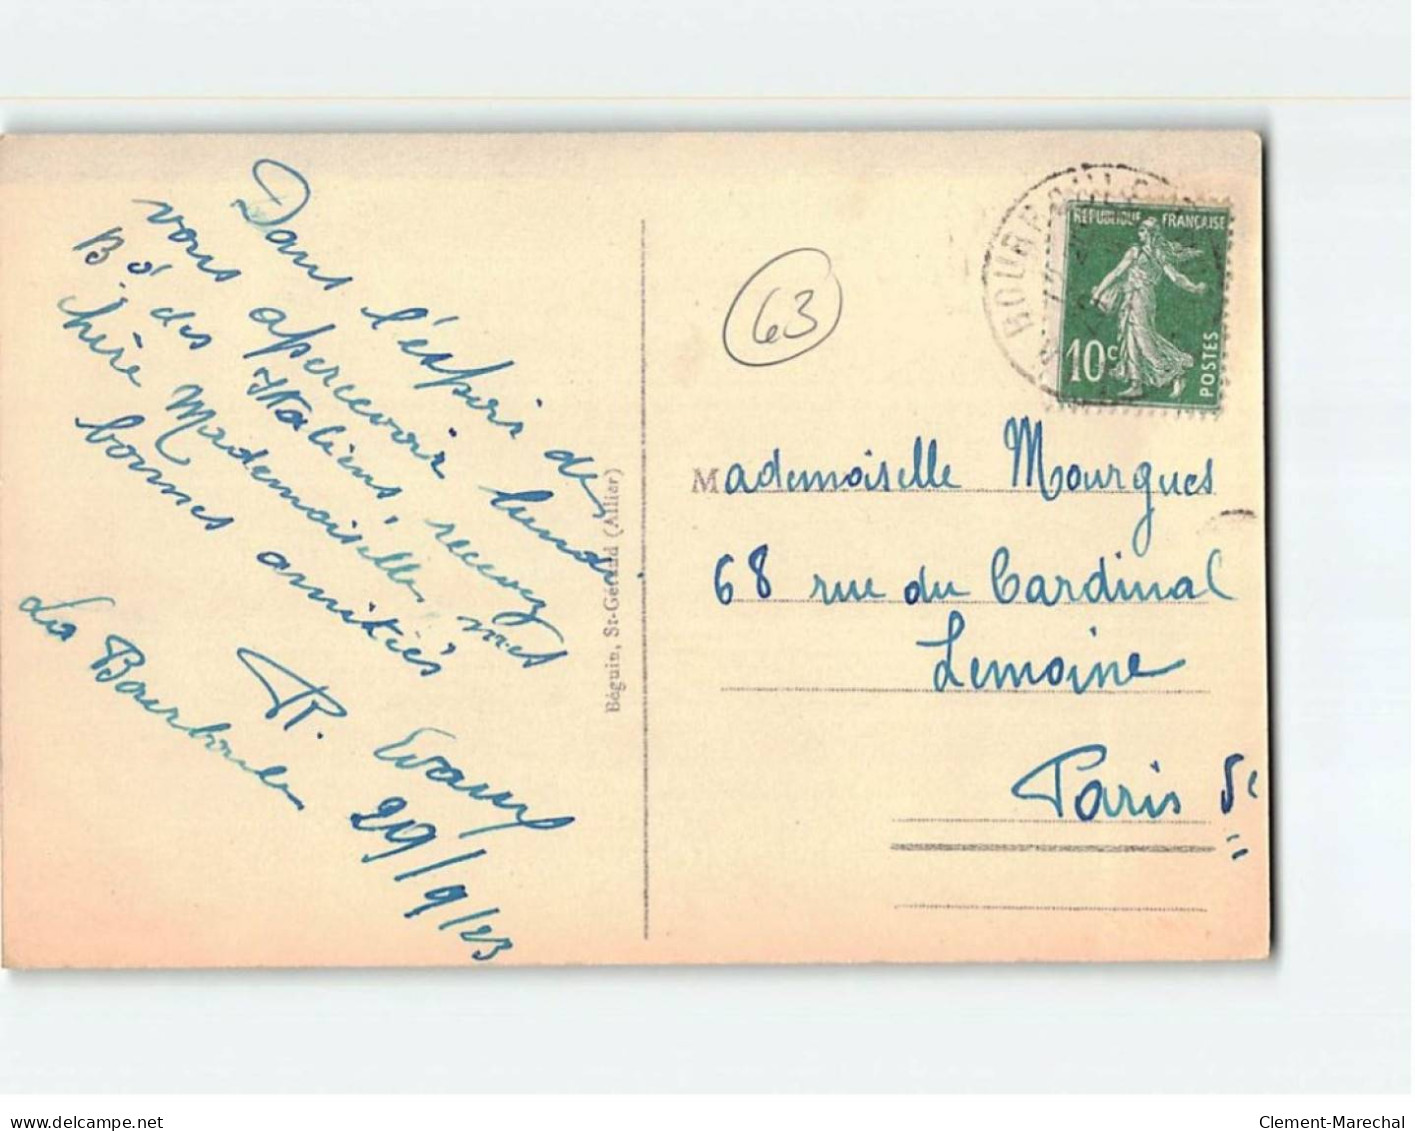 Dans l'espoir de
vous apercevoir lundi
Bd des Italiens, recevez
chère Mademoiselle, mes
bonnes amitiés
La Bourboule 29/9/23
Béguin, St-Gérand (Allier)
63
BOURBOULE
REPUBLIQUE FRANÇAISE
10c
POSTES
Mademoiselle Mourgues
68 rue du Cardinal
Lemoine
Paris 5e
delcampe.net
Clement-Marechal